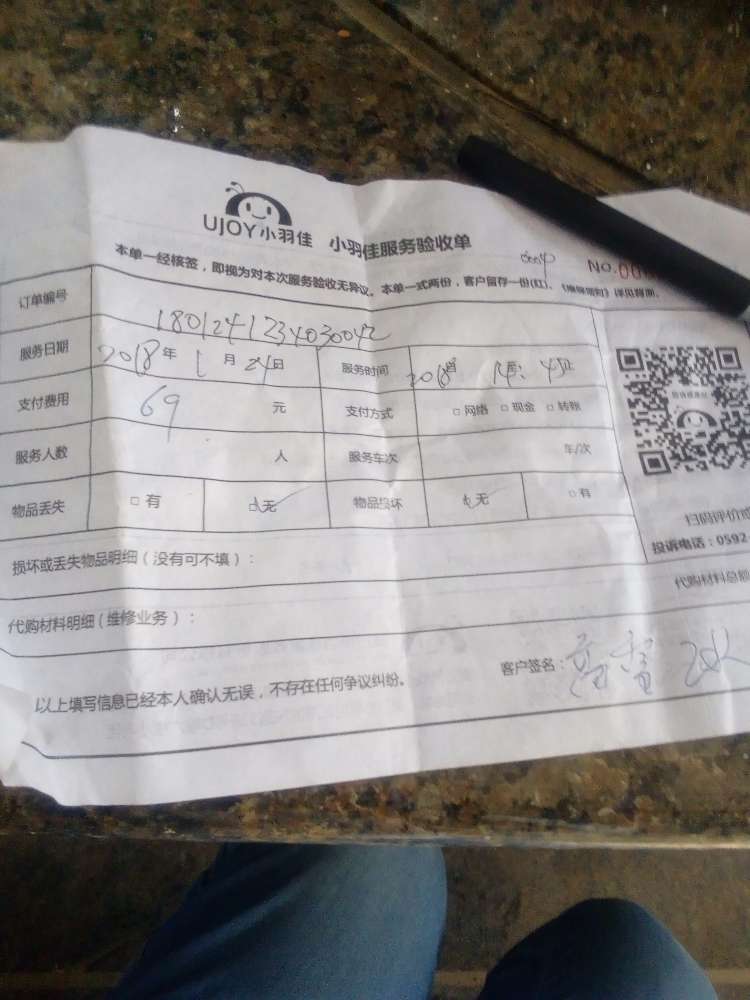 UJOY小羽佳 小羽佳服务验收单
本单一经核签，即视为对本次服务验收无异议。本单一式两份，客户留存一份(红)。
NO.00
订单编号 1801241234030042
服务日期 2018年1月24日 服务时间 2018
支付费用 69元 支付方式 □网络 □现金 □转账
服务人数 人 服务车次 车/次
物品丢失 □有 □无 物品损坏 □无 □有
损坏或丢失物品明细（没有可不填）：
代购材料明细（维修业务）： 代购材料总额
扫码评价
投诉电话：0592
以上填写信息已经本人确认无误，不存在任何争议纠纷。 客户签名：